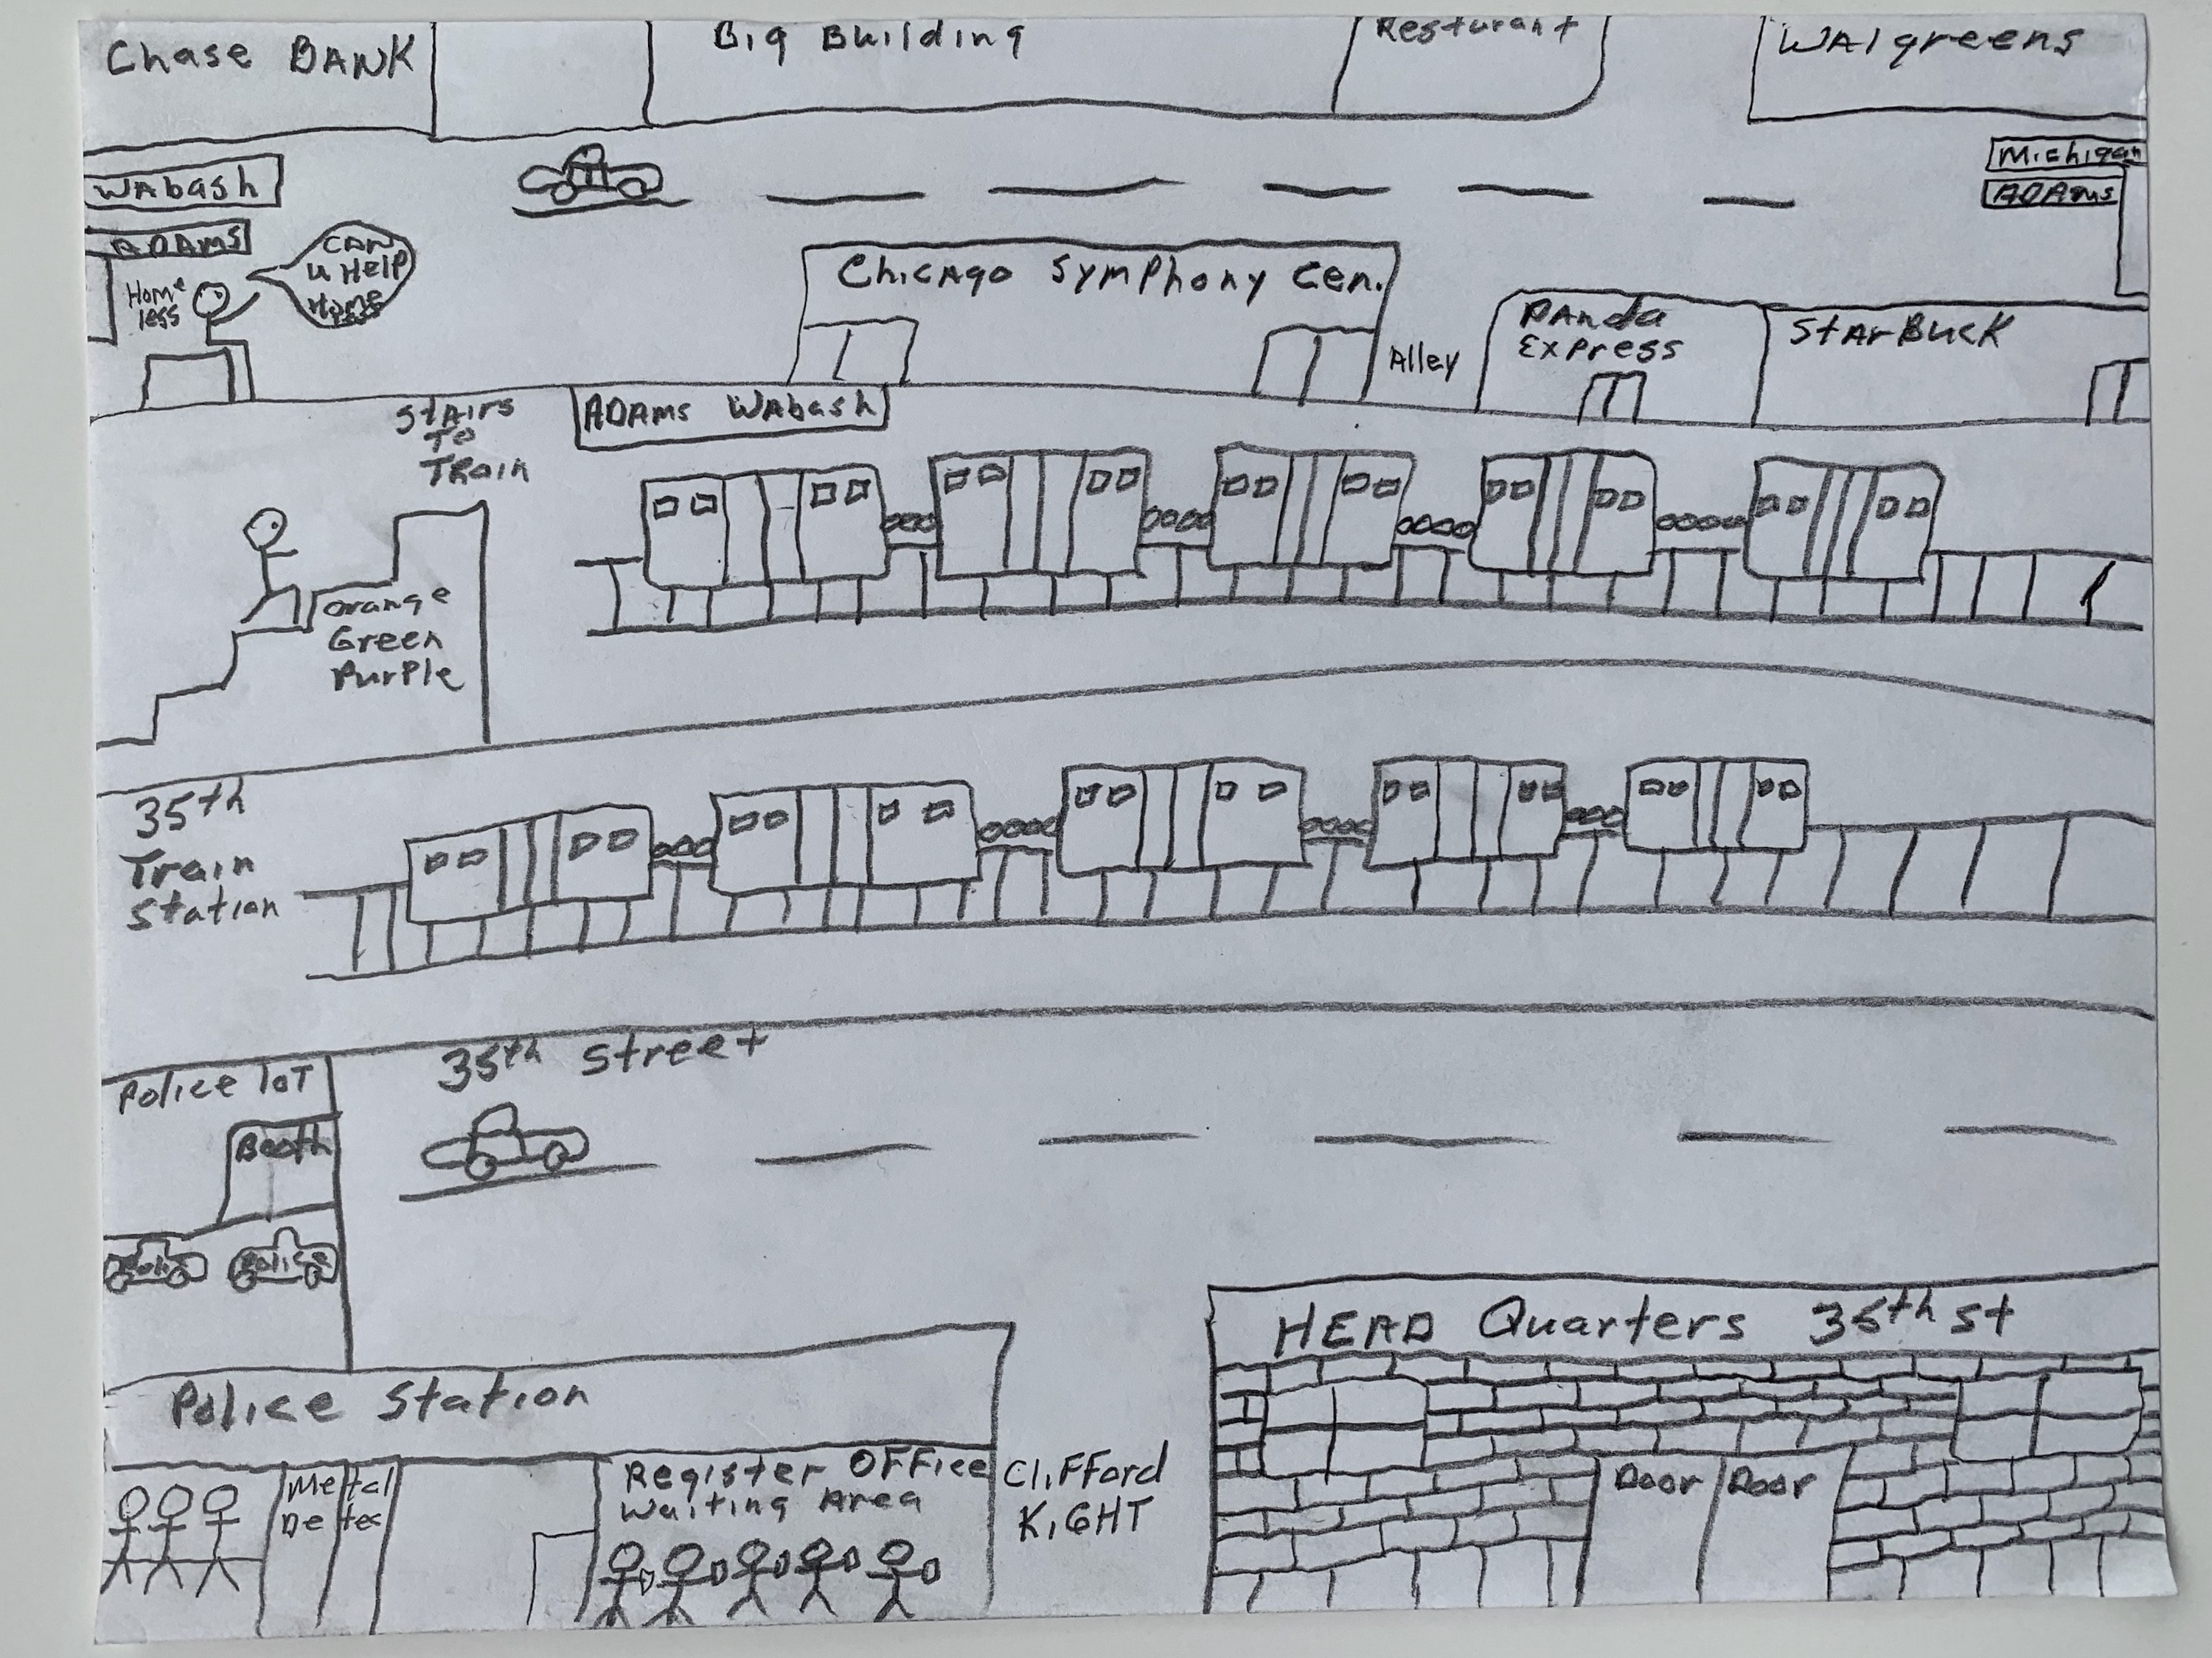 Chase BANK
Big Building
Resturant
WAlgreens
WAbash
ADAms
Michigan
ADAms
Home
less
CAN
U Help
Home
less
Chicago Symphony Cen.
Alley
PAnda
Express
StArBuck
StAirs
To
Train
ADAms WAbash
Orange
Green
Purple
35th
Train
Station
35th Street
Police lot
Booth
Police
Police Station
HEAD Quarters 35th st
Metal
Detec
Register Office
Waiting Area
Clifford
KiGHT
Door Door